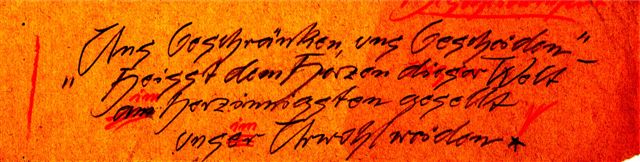 Uns Geschränken, uns Gescheiden" –
"Heisst dem Herzen dieser Welt
am im herzinnigsten gesellt
unser im Urwohl weiden *